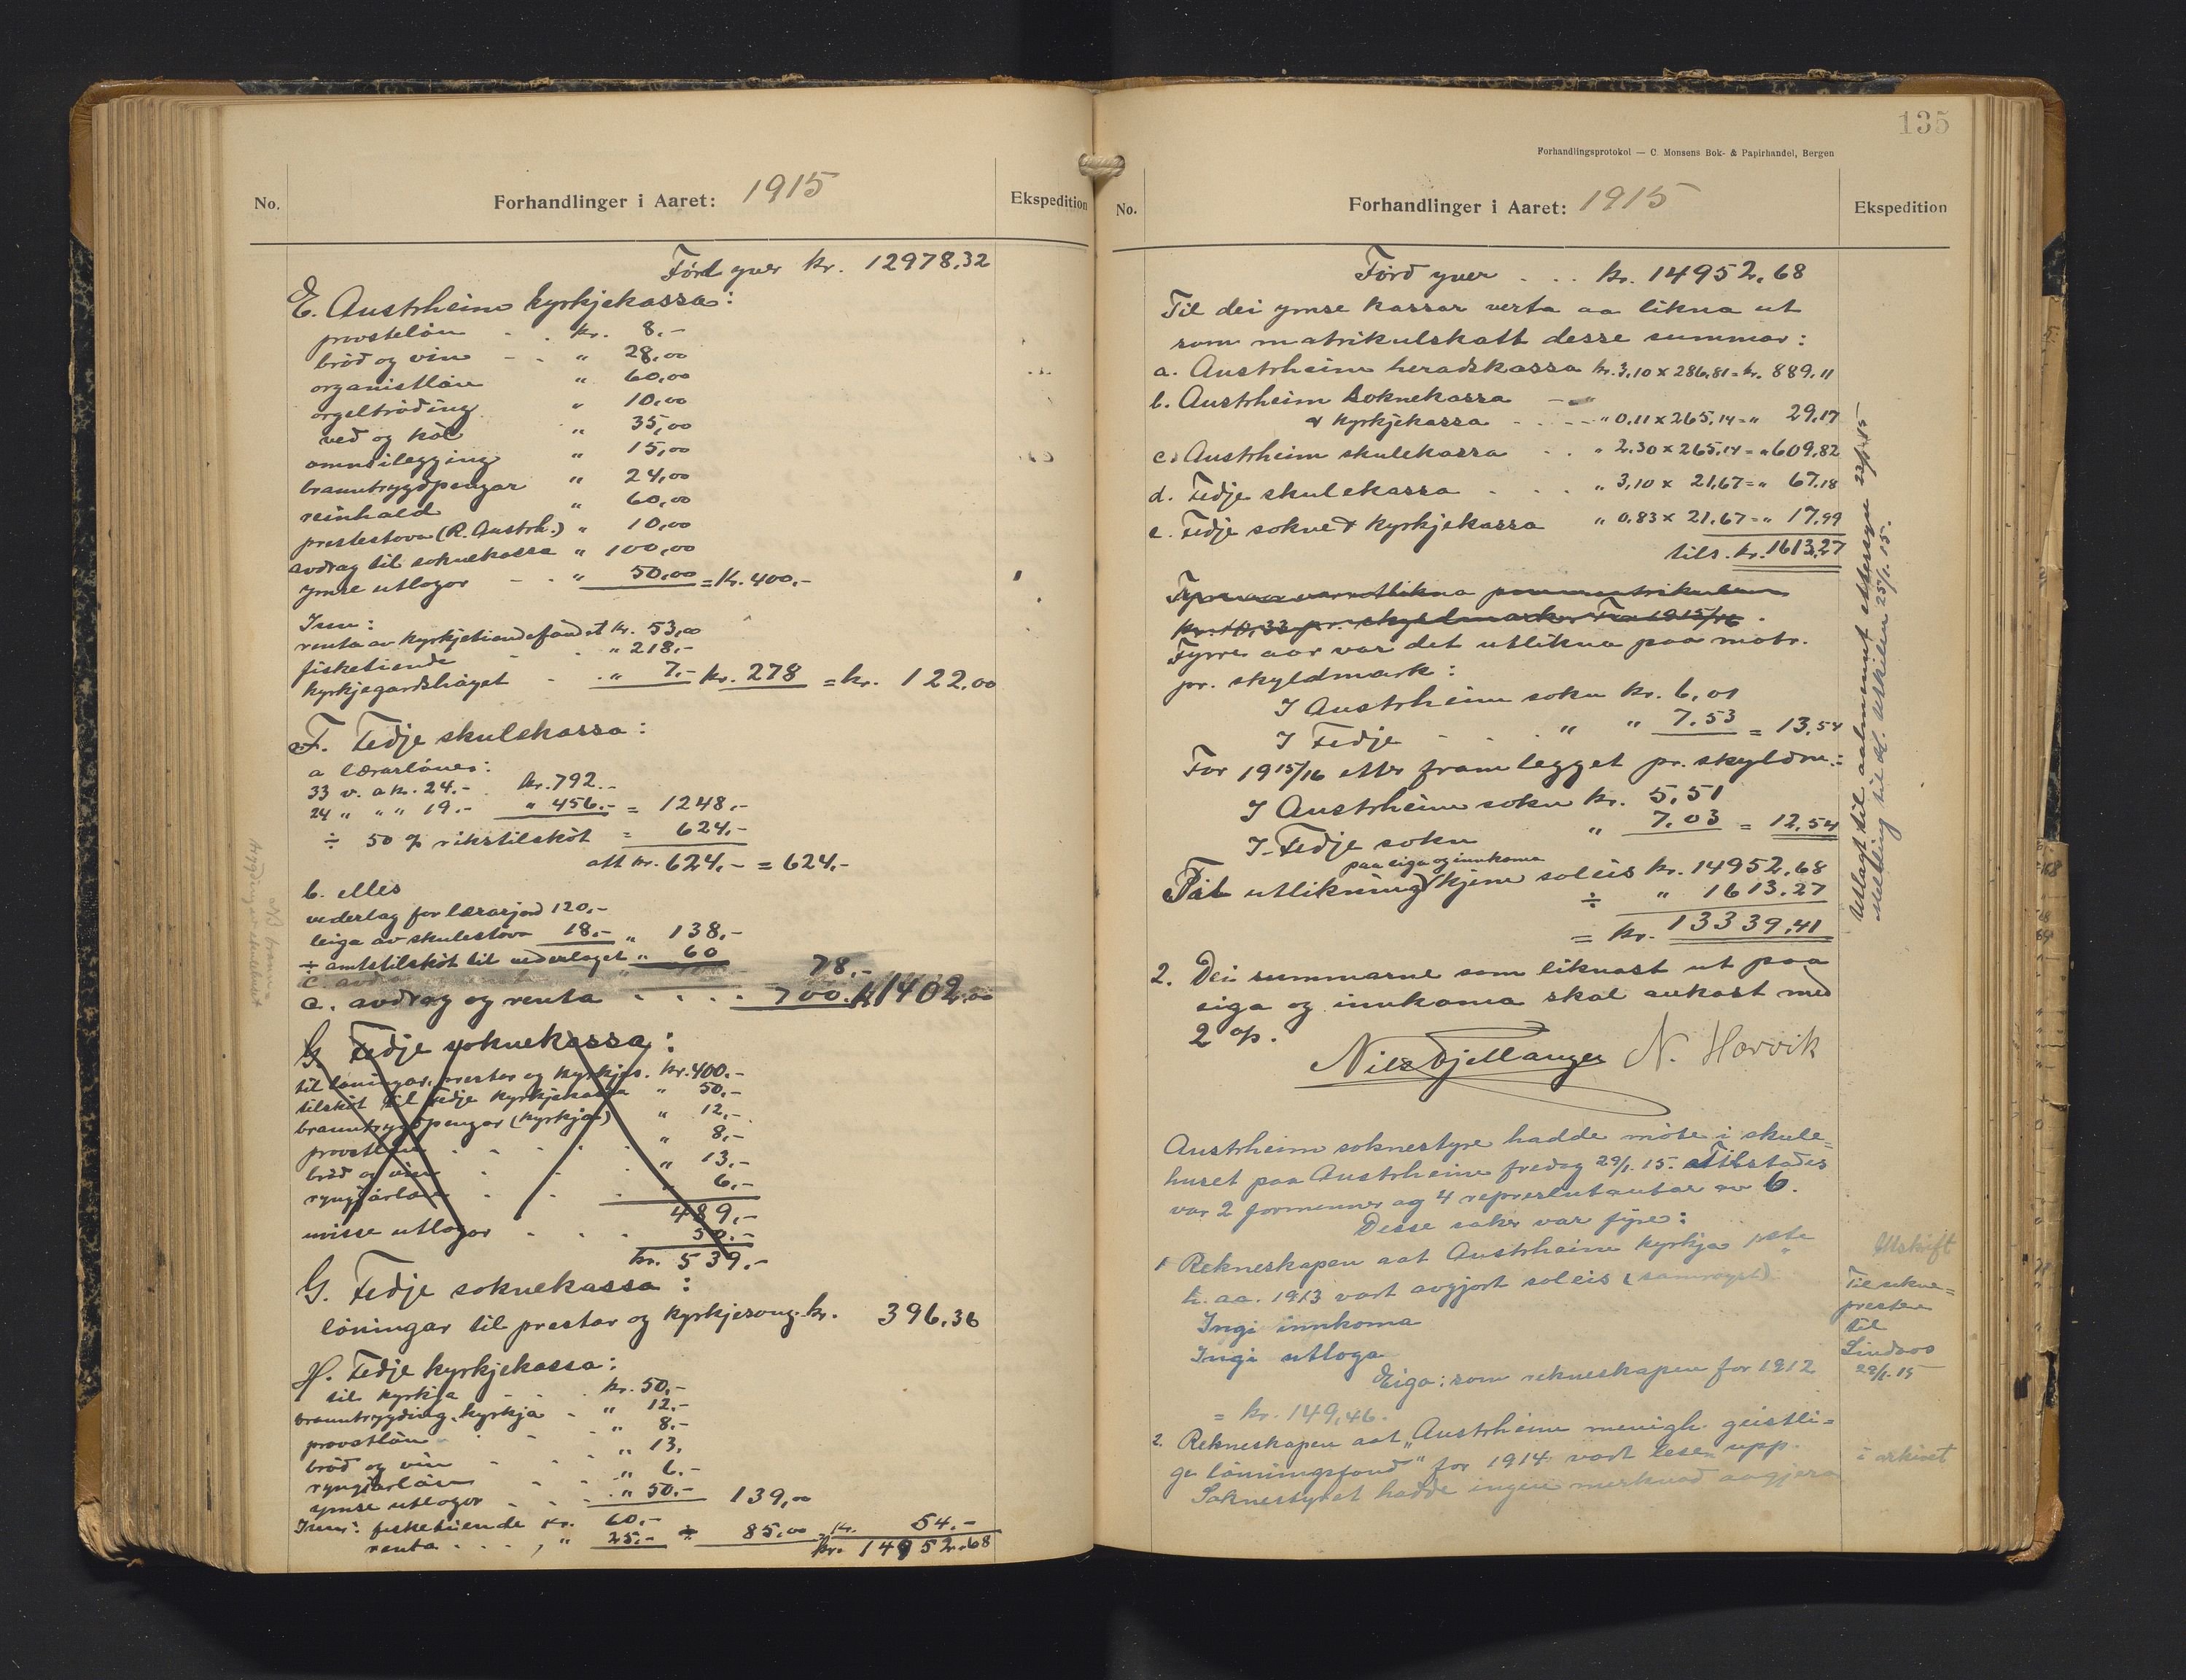 No.
Forhandlinger i Aaret: 1915
Ekspedition
Förd yver kr. 12978,32
E. Austrheim kyrkjekassa:
provstelön . . kr. 8.-
bröd og vin - . " 28,00
organistlön " 60,00
orgeltröding " 10,00
ved og kol " 35,00
omnsilegging " 15,00
branntrygdpengar " 24,00
reinhald " 60,00
prestestova (R. Austrh.) " 10,00
avdrag til soknekassa " 100,00
ymse utlogor - . " 50,00 = kr. 400.-
Inn:
renta av kyrkjetiendefondet kr. 53,00
fisketiende . . " 218.-
kyrkjegardshöyet . . " 7.- kr. 278 = kr. 122,00
F. Fedje skulekassa:
a lærarlöner:
33 v. a kr. 24.- . kr. 792.-
24 " " " 19.- " 456.- = 1248.-
÷ 50 % rikstilskot = 624.-
att kr. 624.- = 624.-
b. elles
vederlag for lærarjord 120.-
leiga av skulestova 18.- " 138.-
÷ amtstilskot til vederlaget " 60
78.-
c. avdrag og renta . . . . 700. kr 1402,00
G. Fedje soknekassa:
til löningar, prestar og kyrkjes. kr. 400.-
tilskot til Fedje kyrkjekassa " 50.-
branntrygdpengar (kyrkja) " 12.-
provstlön . . . . " 8.-
bröd og vin . . . " 13.-
ryngjarlön . . . " 6.-
489.-
uvisse utlogor . . . 50.-
kr. 539.-
G. Fedje soknekassa:
löningar til prestar og kyrkjesong. kr. 396,36
H. Fedje kyrkjekassa:
til kyrkja - . . kr. 50.-
branntrygding, kyrkja - " 12.-
provstlön . - . " 8.-
bröd og vin . . " 13,
ryngjarlön . . " 6.-
ymse utlogor . . . " 50.- 139,00
Inn: fisketiende kr. 60.-
renta . . . , " 25.- ÷ 85,00 = kr. 54.-
kr. 14952.68
135
Forhandlingsprotokol — C. Monsens Bok- & Papirhandel, Bergen
No.
Forhandlinger i Aaret: 1915
Ekspedition
Förd yver . . . kr. 14952,68
Til dei ymse kassar verta aa likna ut
som matrikulskatt desse summar:
a. Austrheim heradskassa kr. 3,10 x 286,81 = kr. 889,11
b. Austrheim soknekassa -
& kyrkjekassa . . - - " 0,11 x 265,14 = " 29,17
c. Austrheim skulekassa . . " 2,30 x 265,14 = " 609,82
d. Fedje skulekassa . . . " 3,10 x 21,67 = " 67,18
e. Fedje sokne & kyrkjekassa " 0,83 x 21,67 = " 17,99
tils. kr. 1613,27
Fyrre aar var det utlikna paa matr.
pr. skyldmark:
I Austrheim sokn kr. 6,01
I Fedje . . . " " 7.53 = 13,54
For 1915/16 etter framlegget pr. skyldm.:
I Austrheim sokn kr. 5,51
I Fedje sokn " 7,03 = 12,54
paa eiga og innkoma
Til utlikning kjem soleis kr. 14952,68
÷ " 1613.27
= kr. 13339,41
2. Dei summarne som liknast ut paa
eiga og innkoma skal aukast med
2 %.
Nils Gjellanger N. Horvik
Utlagt til aalment ettersyn 23/1-15
Melding til 25/1.15.
Austrheim soknestyre hadde möte i skule=
huset paa Austrheim fredag 29/1. 15. Tilstades
var 2 formenner og 4 representantar av 6.
Desse saker var fyre:
1 Rekneskapen aat Austrheim kyrkja
h. aa. 1913 vart avgjort soleis (samröystt)
Ingi innkoma
Ingi utloga
Eiga: som rekneskapen for 1912
= kr. 149,46.
2. Rekneskapen aat "Austrheim menigh. geistli=
ge lönningsfond" for 1914 vart lesen upp.
Soknestyret hadde ingen merknad aagjera
Utskrift
Til sokne=
presten
til
Lindaas
29/1.15
i arkivet